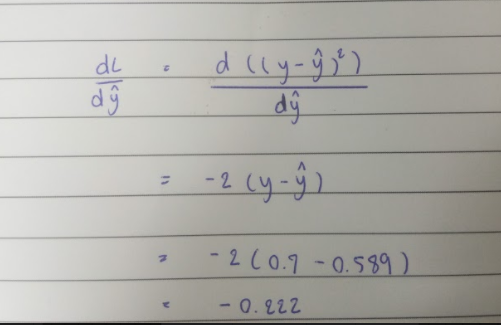 dL/dŷ = d((y-ŷ)²)/dŷ
= -2(y-ŷ)
= -2(0.7 - 0.589)
= -0.222